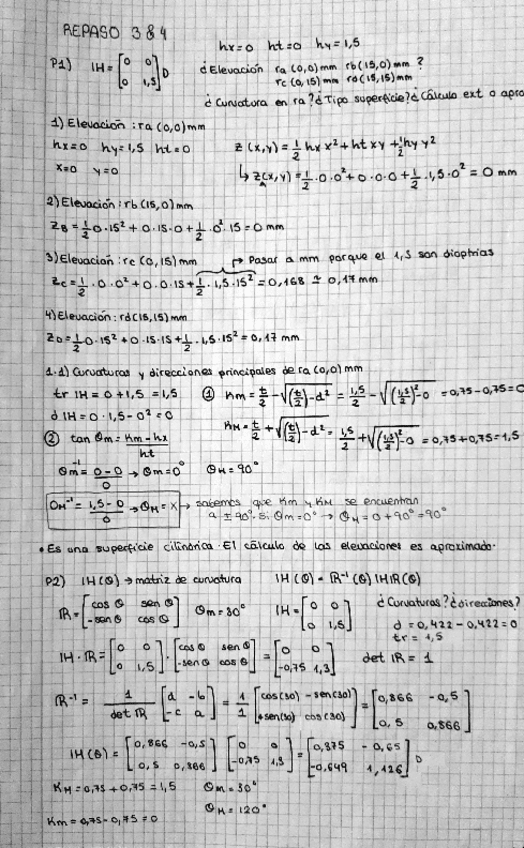 REPASO 3&4
hx=0 ht=0 hy=1,5
P1) IH = [0 0; 0 1,5] D ¿Elevación ra (0,0)mm rb(15,0)mm ?
rc (0,15)mm rd(15,15)mm
¿Curvatura en ra?¿Tipo superficie?¿Cálculo ext o apro
1) Elevación: ra (0,0)mm
hx=0 hy=1,5 ht=0 z(x,y)=1/2 hx x²+ht xy+1/2 hy y²
x=0 y=0 ↳ zA(x,y)=1/2·0·0²+0·0·0+1/2·1,5·0²=0 mm
2) Elevación: rb (15,0)mm
ZB=1/2 0·15²+0·15·0+1/2·0²·15=0mm
3) Elevación: rc (0,15)mm ↱ Pasar a mm porque el 1,5 son dioptrías
Zc=1/2·0·0²+0·0·15+1/2·1,5·15²=0,168 ≃ 0,17mm
4) Elevación: rd(15,15)mm
ZD=1/2 0·15²+0·15·15+1/2·1,5·15²=0,17mm
1.1) Curvaturas y direcciones principales de ra(0,0)mm
tr IH=0+1,5=1,5 ① Km=t/2-√((t/2)-d²)=1,5/2-√((1,5/2)²-0)=0,75-0,75=0
d IH=0·1,5-0²=0 KM=t/2+√((t/2)-d²=1,5/2+√((1,5/2)²-0)=0,75+0,75=1,5
② tan Θm=Km-hx/ht
Θm⁻¹=0-0/0→Θm=0° ΘM=90°
ΘM⁻¹=1,5-0/0→ΘM=X → sabemos que Km y KM se encuentran
a ±90°. Si Θm=0° → ΘM=0+90°=90°
• Es una superficie cilíndrica. El cálculo de las elevaciones es aproximado.
P2) IH(Θ)→matriz de curvatura IH(Θ)=IR⁻¹(Θ)IHIR(Θ)
IR=[cos Θ sen Θ; -sen Θ cos Θ] Θm=30° IH=[0 0; 0 1,5] ¿Curvaturas?¿direcciones?
d=0,422-0,422=0
tr=1,5
IH·IR=[0 0; 0 1,5]·[cosΘ senΘ; -senΘ cosΘ]=[0 0; -0,75 1,3] det IR=1
IR⁻¹=1/det IR [d -b; -c a]=1/1 [cos(30) -sen(30); +sen(30) cos(30)]=[0,866 -0,5; 0,5 0,866]
IH(Θ)=[0,866 -0,5; 0,5 0,866] [0 0; -0,75 1,3]=[0,375 -0,65; -0,649 1,126] D
KM=0,75+0,75=1,5 Θm=30°
ΘM=120°
Km=0,75-0,75=0